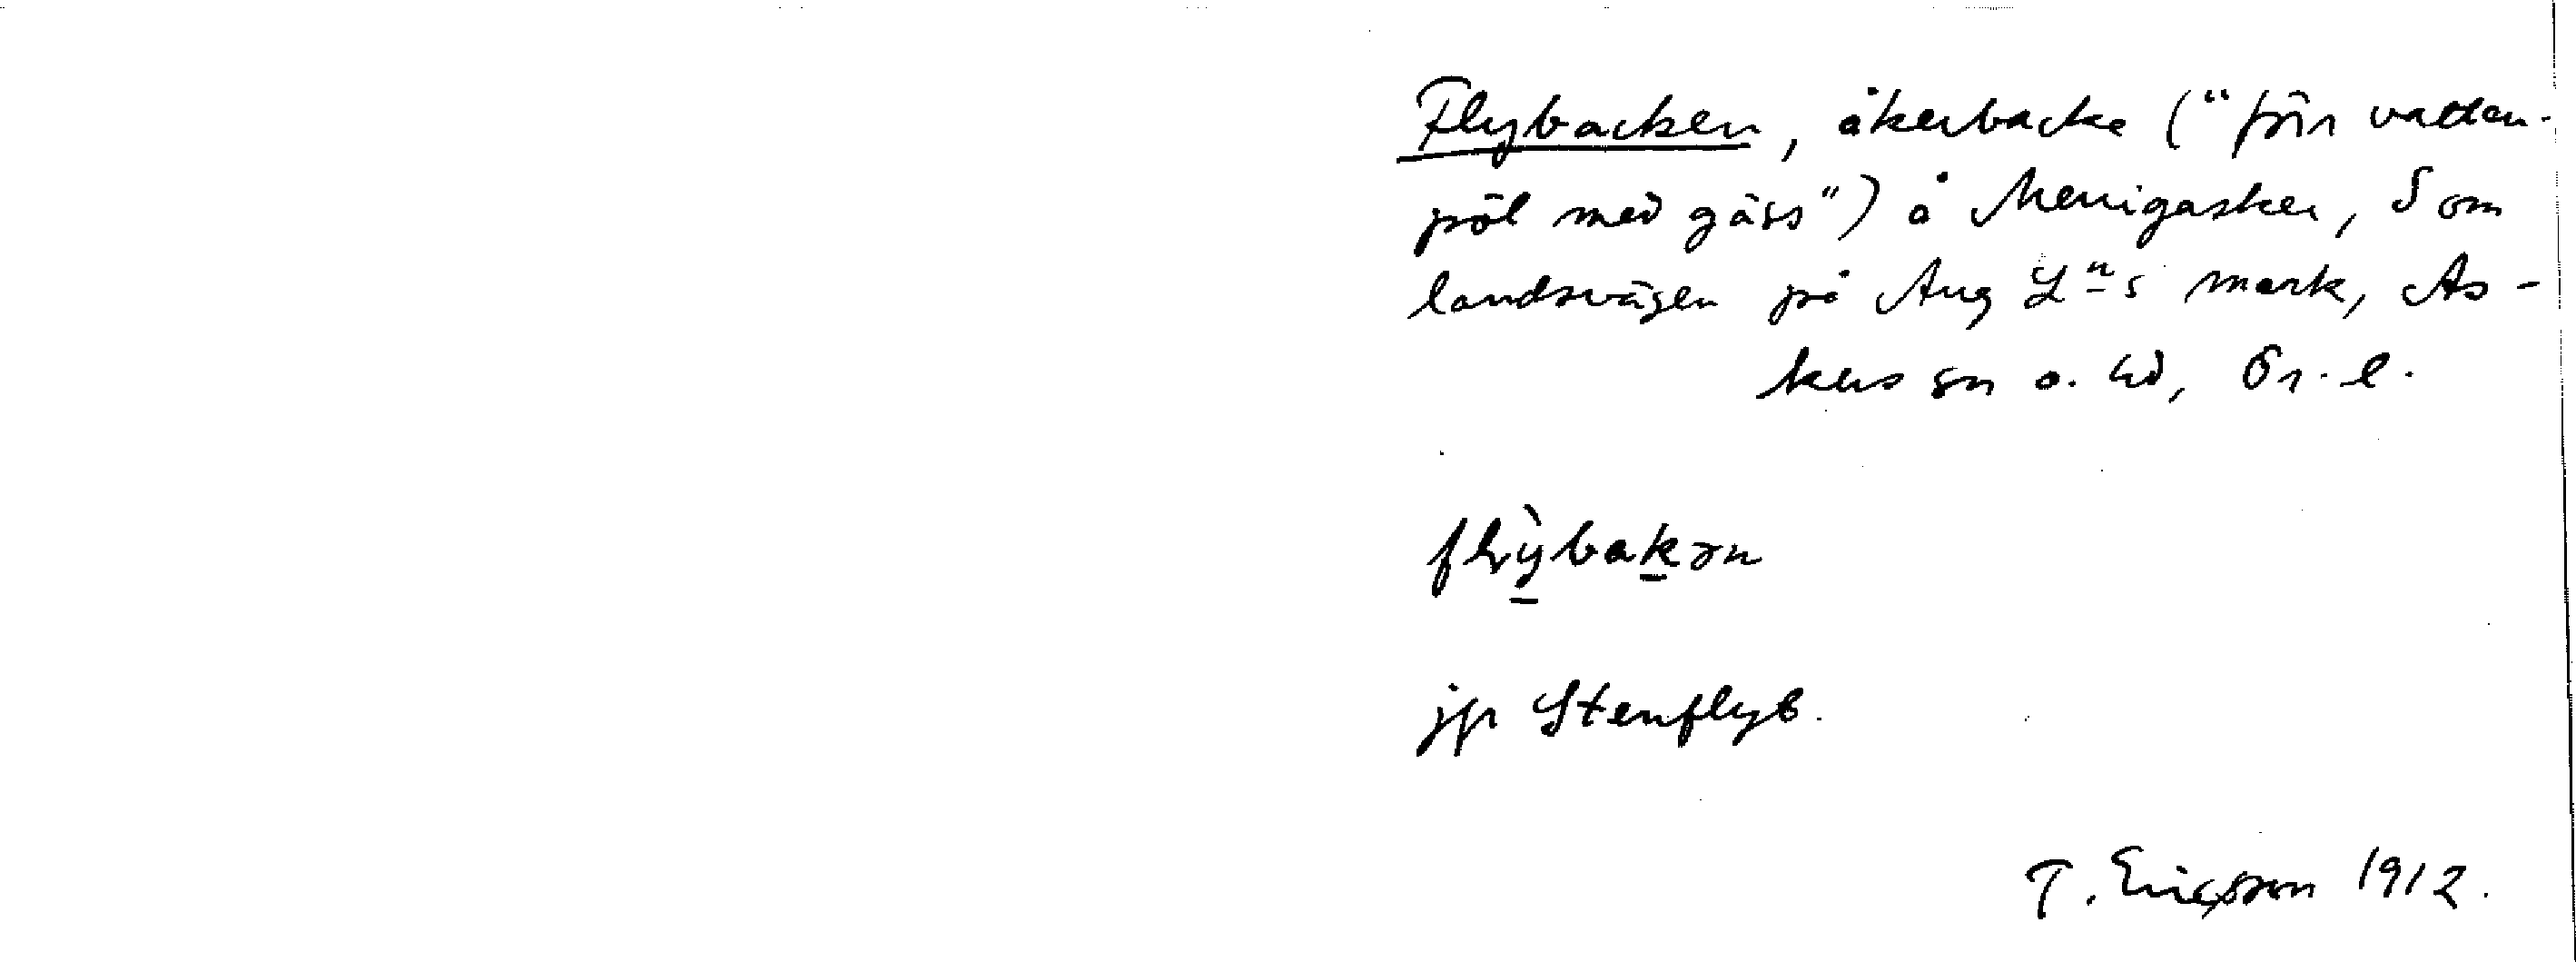 Flybacken, åkerbacke ("förr vatten-
pöl med gäss") å Menigasker, S om
landsvägen på Aug Lns mark, As-
kers sn o. hd, Ör. l.
flỳbakən
jfr Stenflyb.
T. Ericsson 1912.